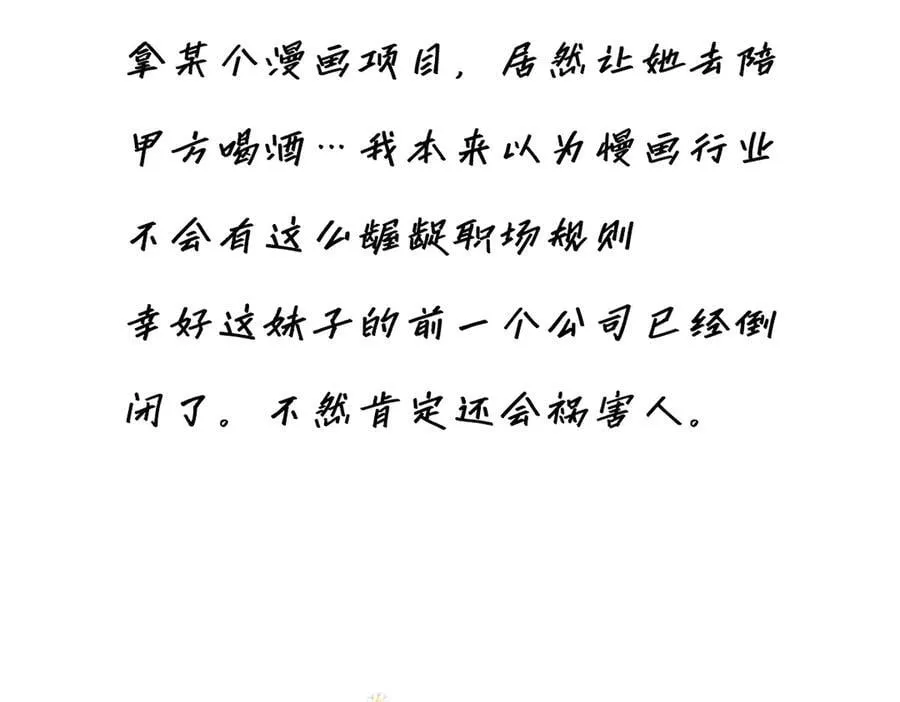 拿某个漫画项目，居然让她去陪
甲方喝酒…我本来以为慢画行业
不会有这么龌龊职场规则
幸好这妹子的前一个公司已经倒
闭了。不然肯定还会祸害人。